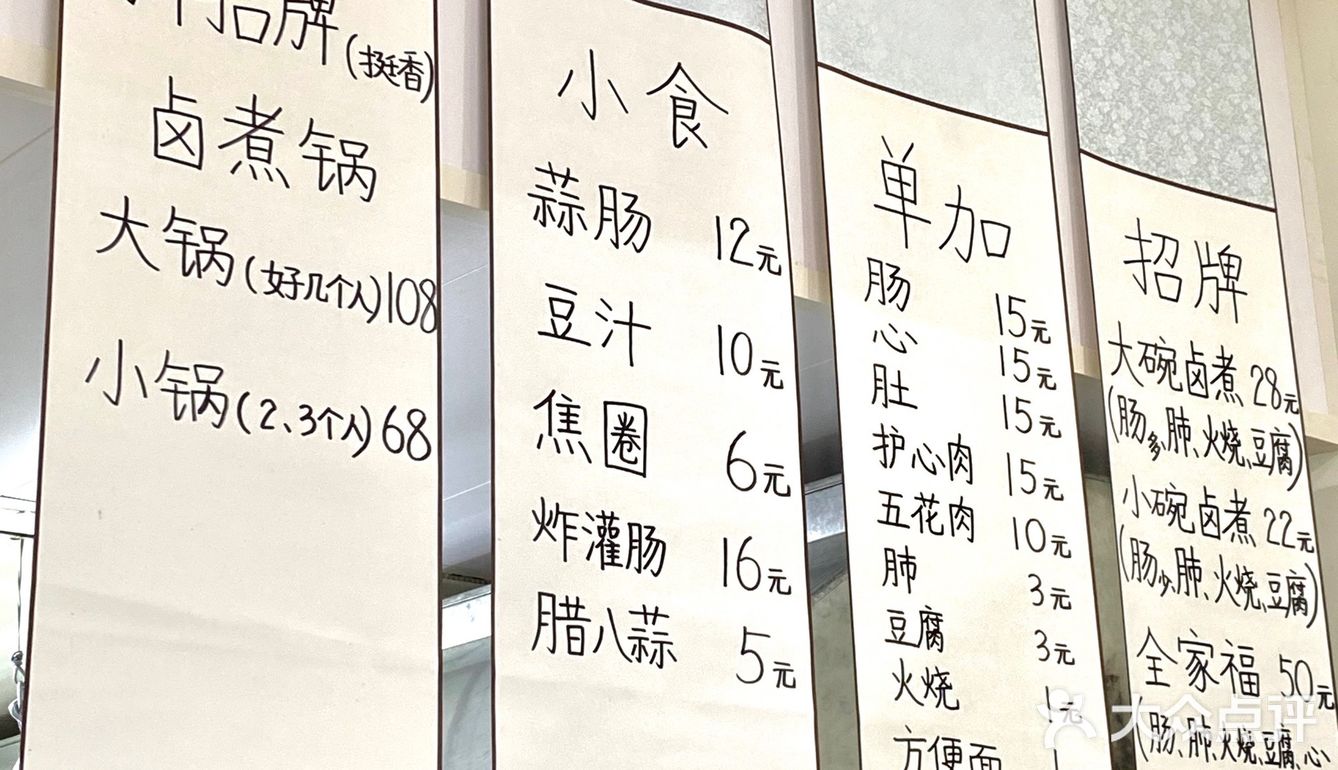 招牌(挺香)
卤煮锅
大锅(好几个人)108
小锅(2、3个人)68
小食
蒜肠 12元
豆汁 10元
焦圈 6元
炸灌肠 16元
腊八蒜 5元
单加
肠 15元
心 15元
肚 15元
护心肉 15元
五花肉 10元
肺 3元
豆腐 3元
火烧 1元
方便面
招牌
大碗卤煮 28元
(肠多、肺、火烧、豆腐)
小碗卤煮 22元
(肠少、肺、火烧、豆腐)
全家福 50元
(肠、肺、火烧、豆腐、心
大众点评